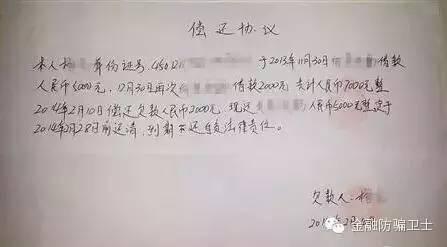 偿还协议
本人杨 身份证号:45012 于2013年11月30日 借款
人民币5000元,12月30日再次 借款2000元 共计人民币7000元整
2014年2月10日偿还欠款人民币2000元,现还 人民币5000元整定于
2014年2月28日前还清,到期不还自负法律责任。
欠款人:杨
201 年2月
金融防骗卫士